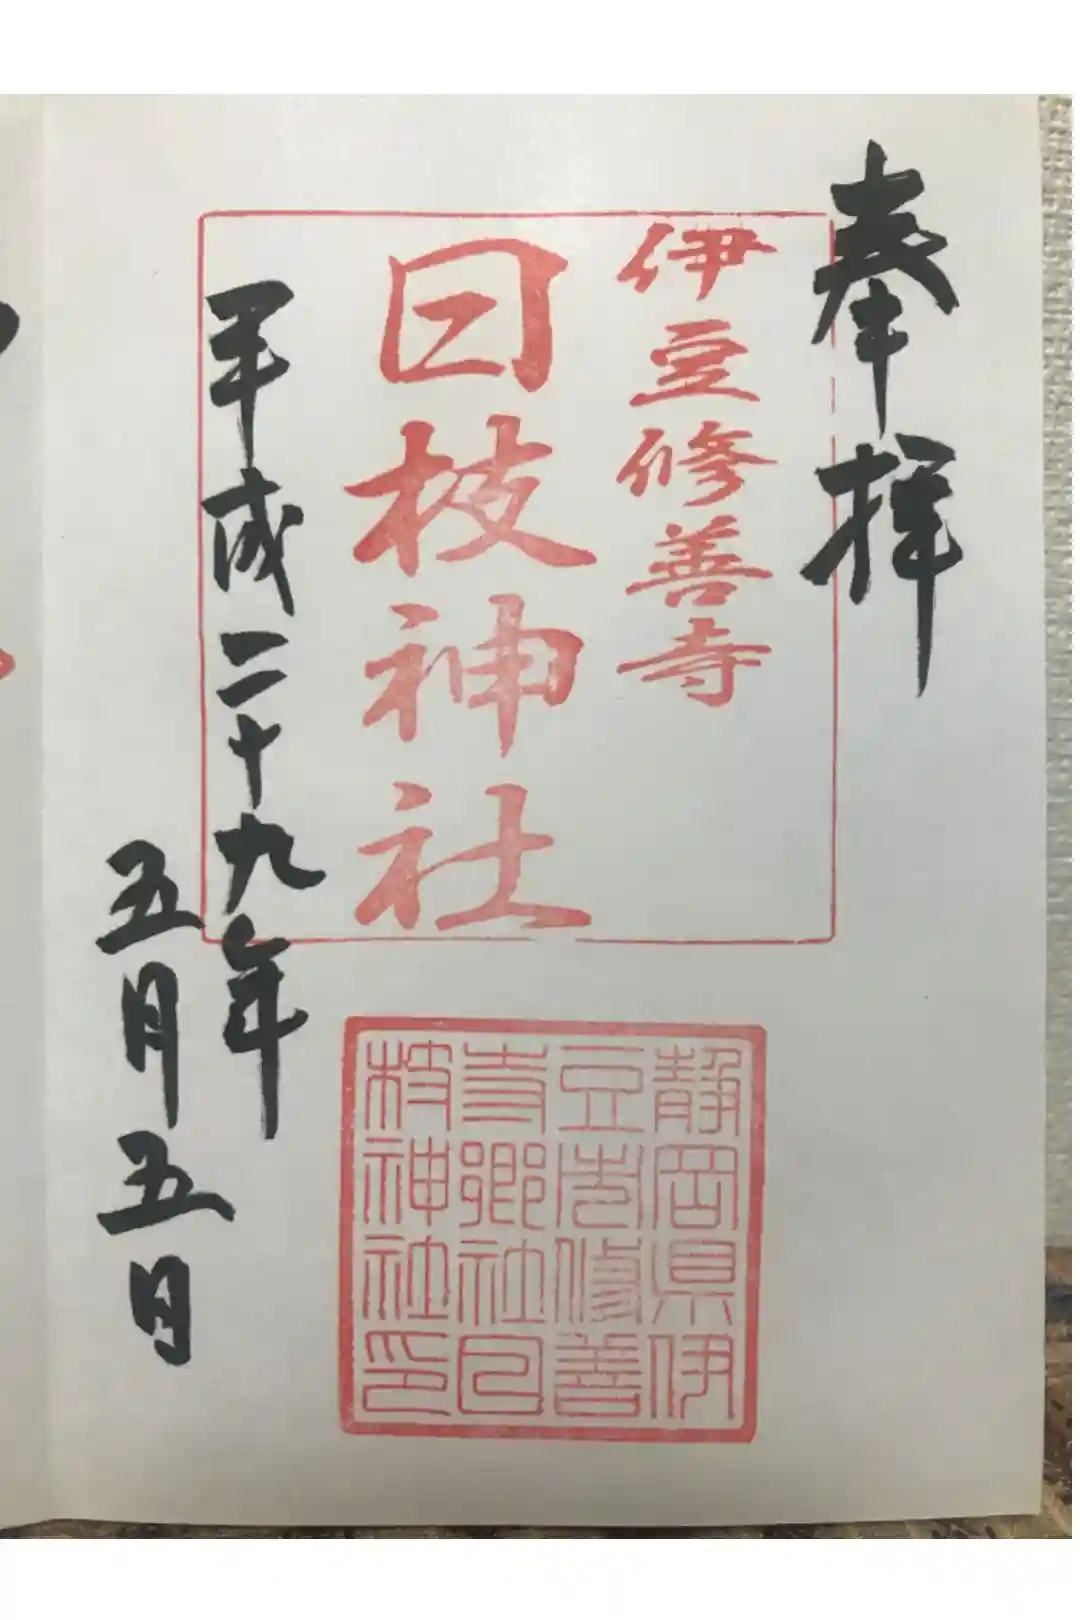 奉拝
伊豆修善寺
日枝神社
平成二十九年
五月五日
静岡県伊
豆市修善
寺郷社日
枝神社印